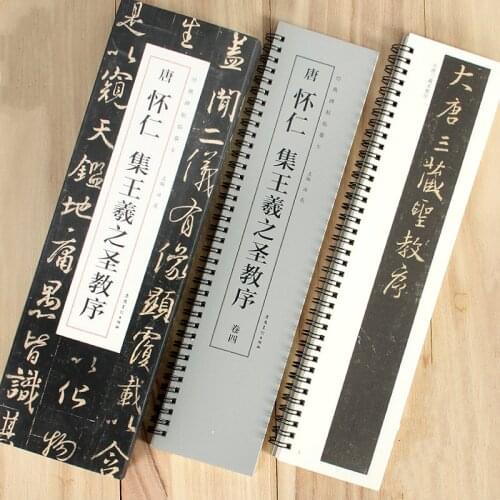 盖聞二儀有像顯覆載以含
生
以化物
是以窺天鑑地庸愚皆識其
唐 怀仁 集王羲之圣教序
唐 怀仁 集王羲之圣教序
卷四
大唐三藏聖教序